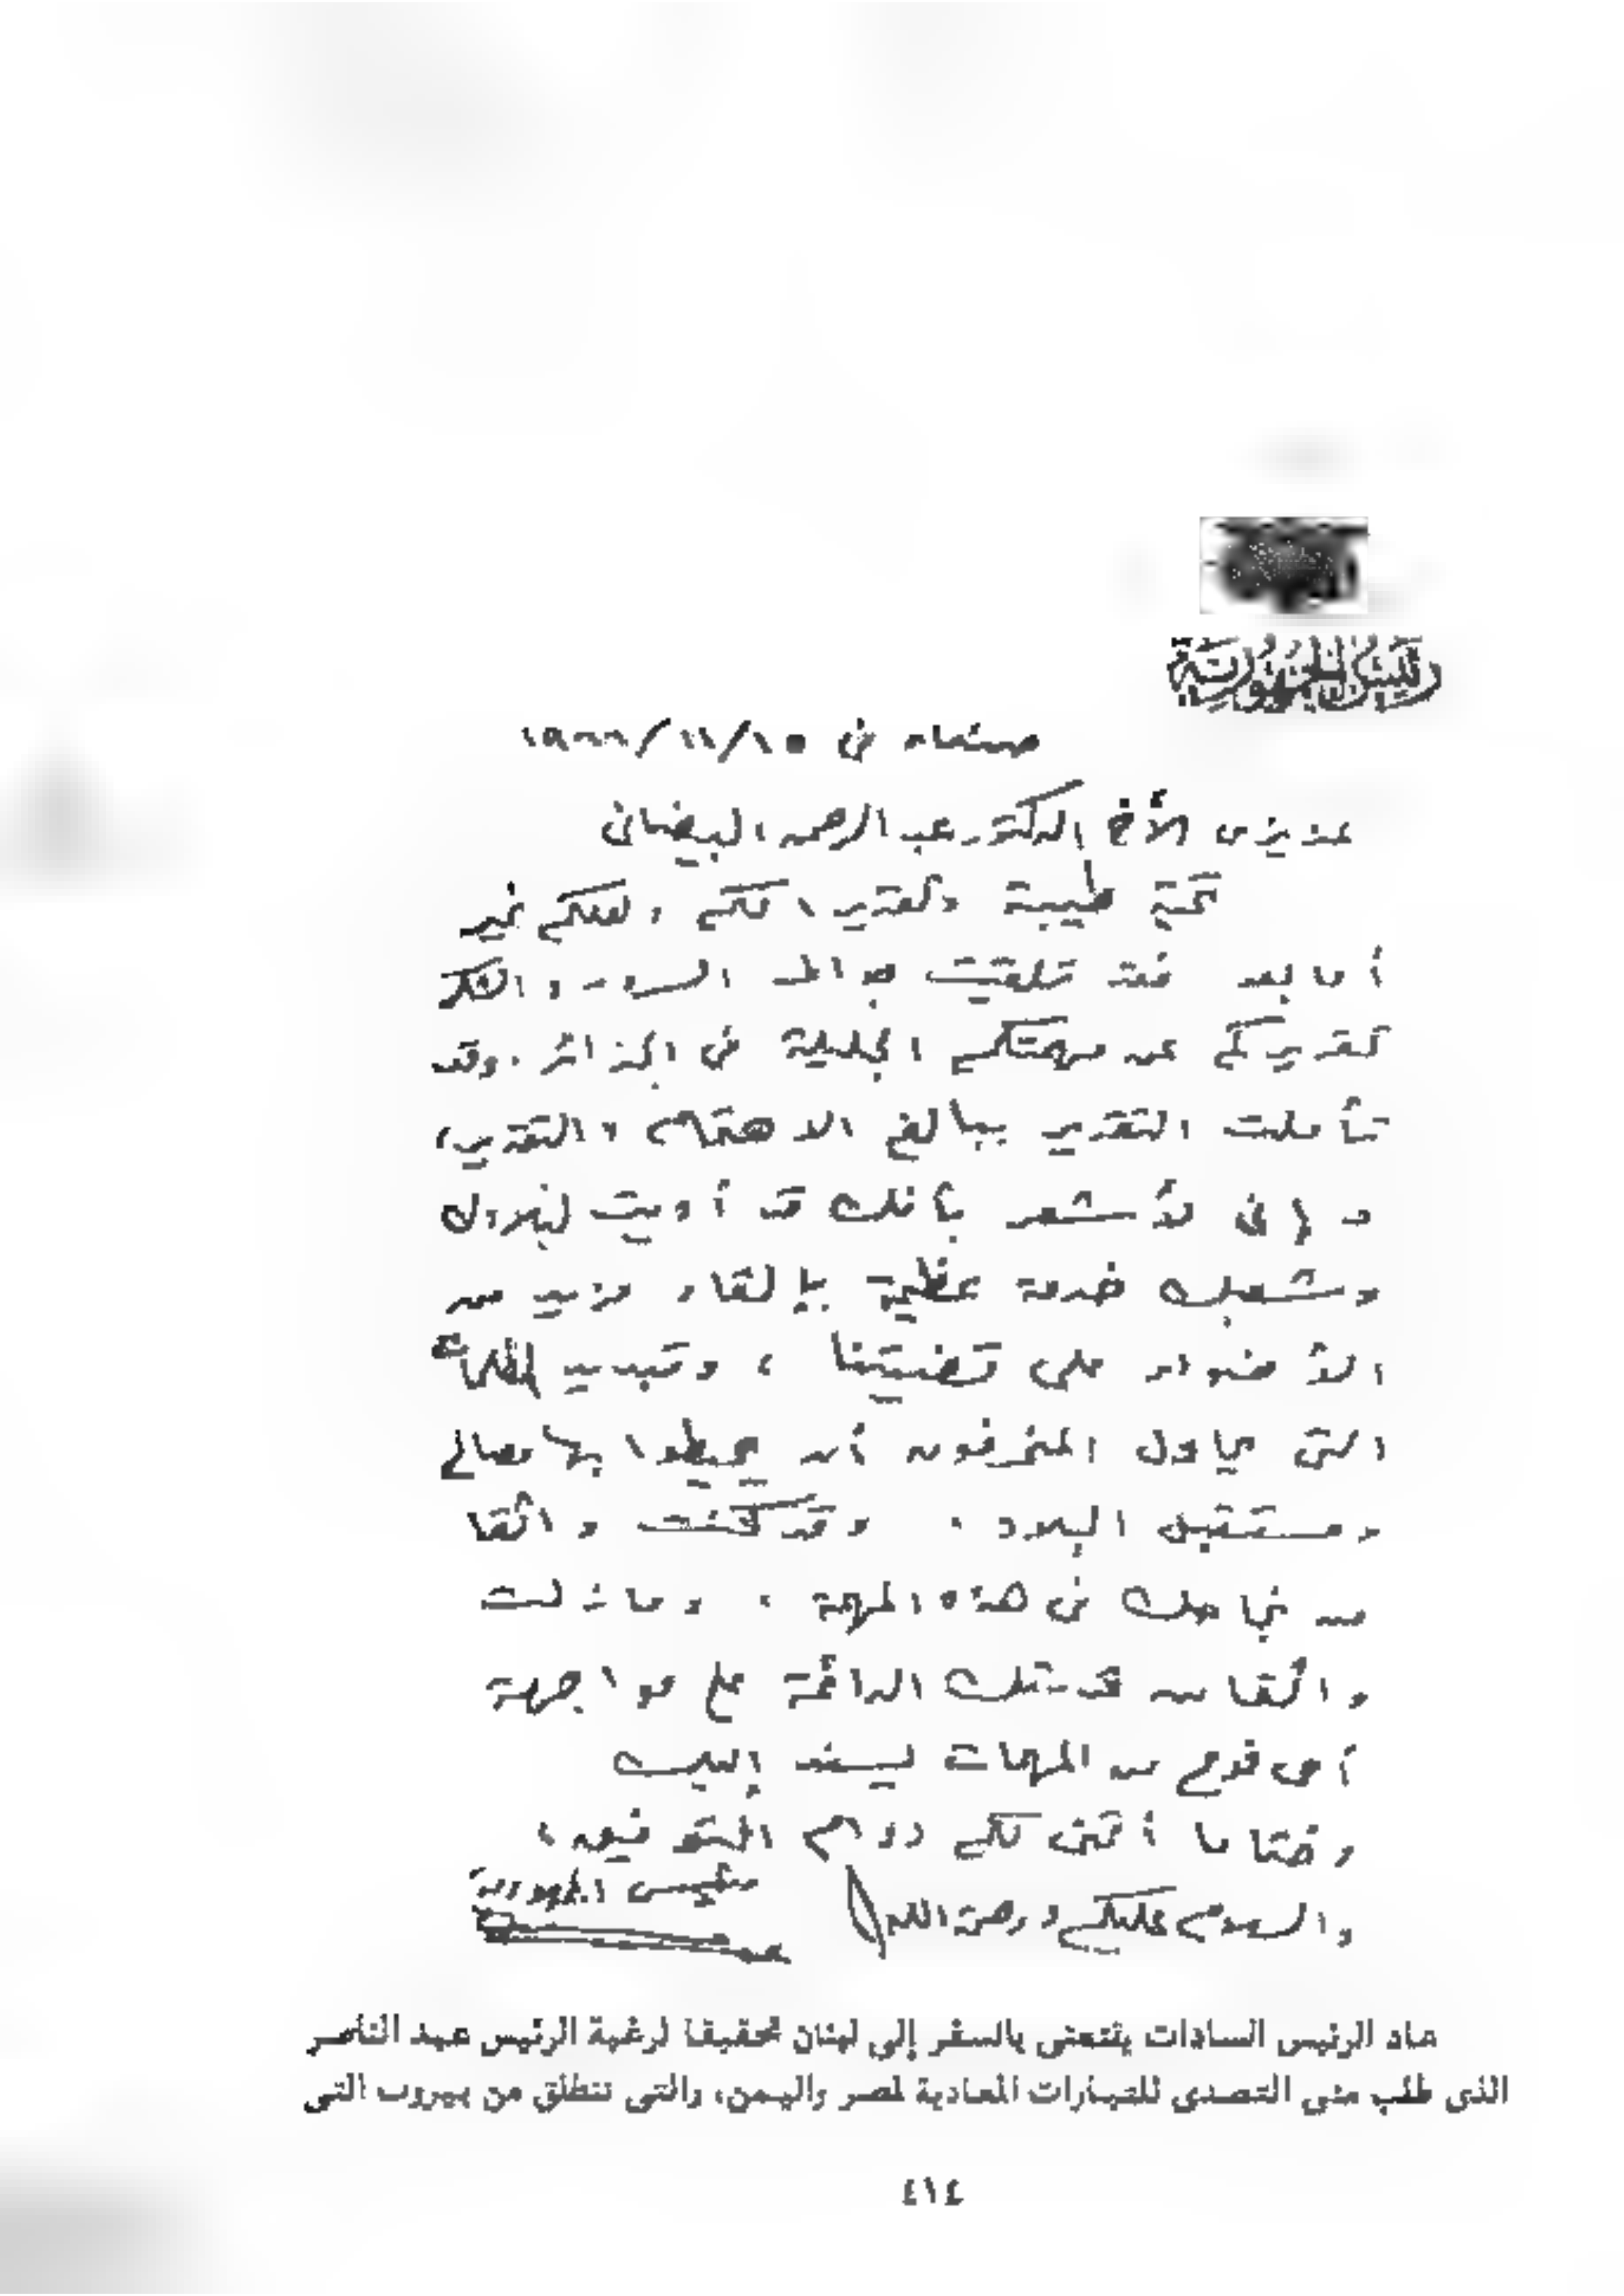 رئيس الجمهورية
صنعاء فى ١٥/١١/١٩٦٦
عزيزى الأخ الدكتور عبد الرحمن البيضانى
تحية طيبة وتقديرا لكم ولعلكم بخير
أما بعد فقد تلقيت ببالغ السرور والشكر
تقريركم عن مهمتكم الجليلة فى الجزائر. وقد
تأملت التقرير ببالغ الاهتمام والتقدير،
وإنى لأشعر بأنك قد أديت لبلادك
وشعبك خدمة عظيمة بإلقاء مزيد من
الأضواء على قضيتنا ، وتبديد الظلمات
التى يحاول المنحرفون أن يحيطوا بها مصالح
ومستقبل البلاد . وقد كنت واثقا
من نجاحك فى هذه المهمة ، وما زلت
واثقا من قدرتك الدائمة على مواجهة
أى نوع من المهمات ليسند إليك
وختاما أتمنى لكم دوام التوفيق ،
والسلام عليكم ورحمة الله
رئيس الجمهورية
عاد الرئيس السادات يقنعنى بالسفر إلى لبنان تحقيقا لرغبة الرئيس عبد الناصر
الذى طلب منى التصدى للتيارات المعادية لمصر واليمن، والتى تنطلق من بيروت التى
٤١٤